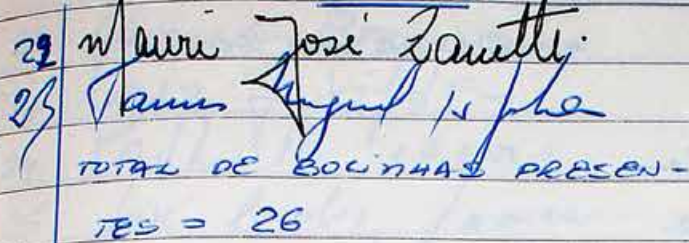 29 Mauri José Zanetti.
Miguel
TOTAL DE BOLINHAS PRESEN-
TES = 26